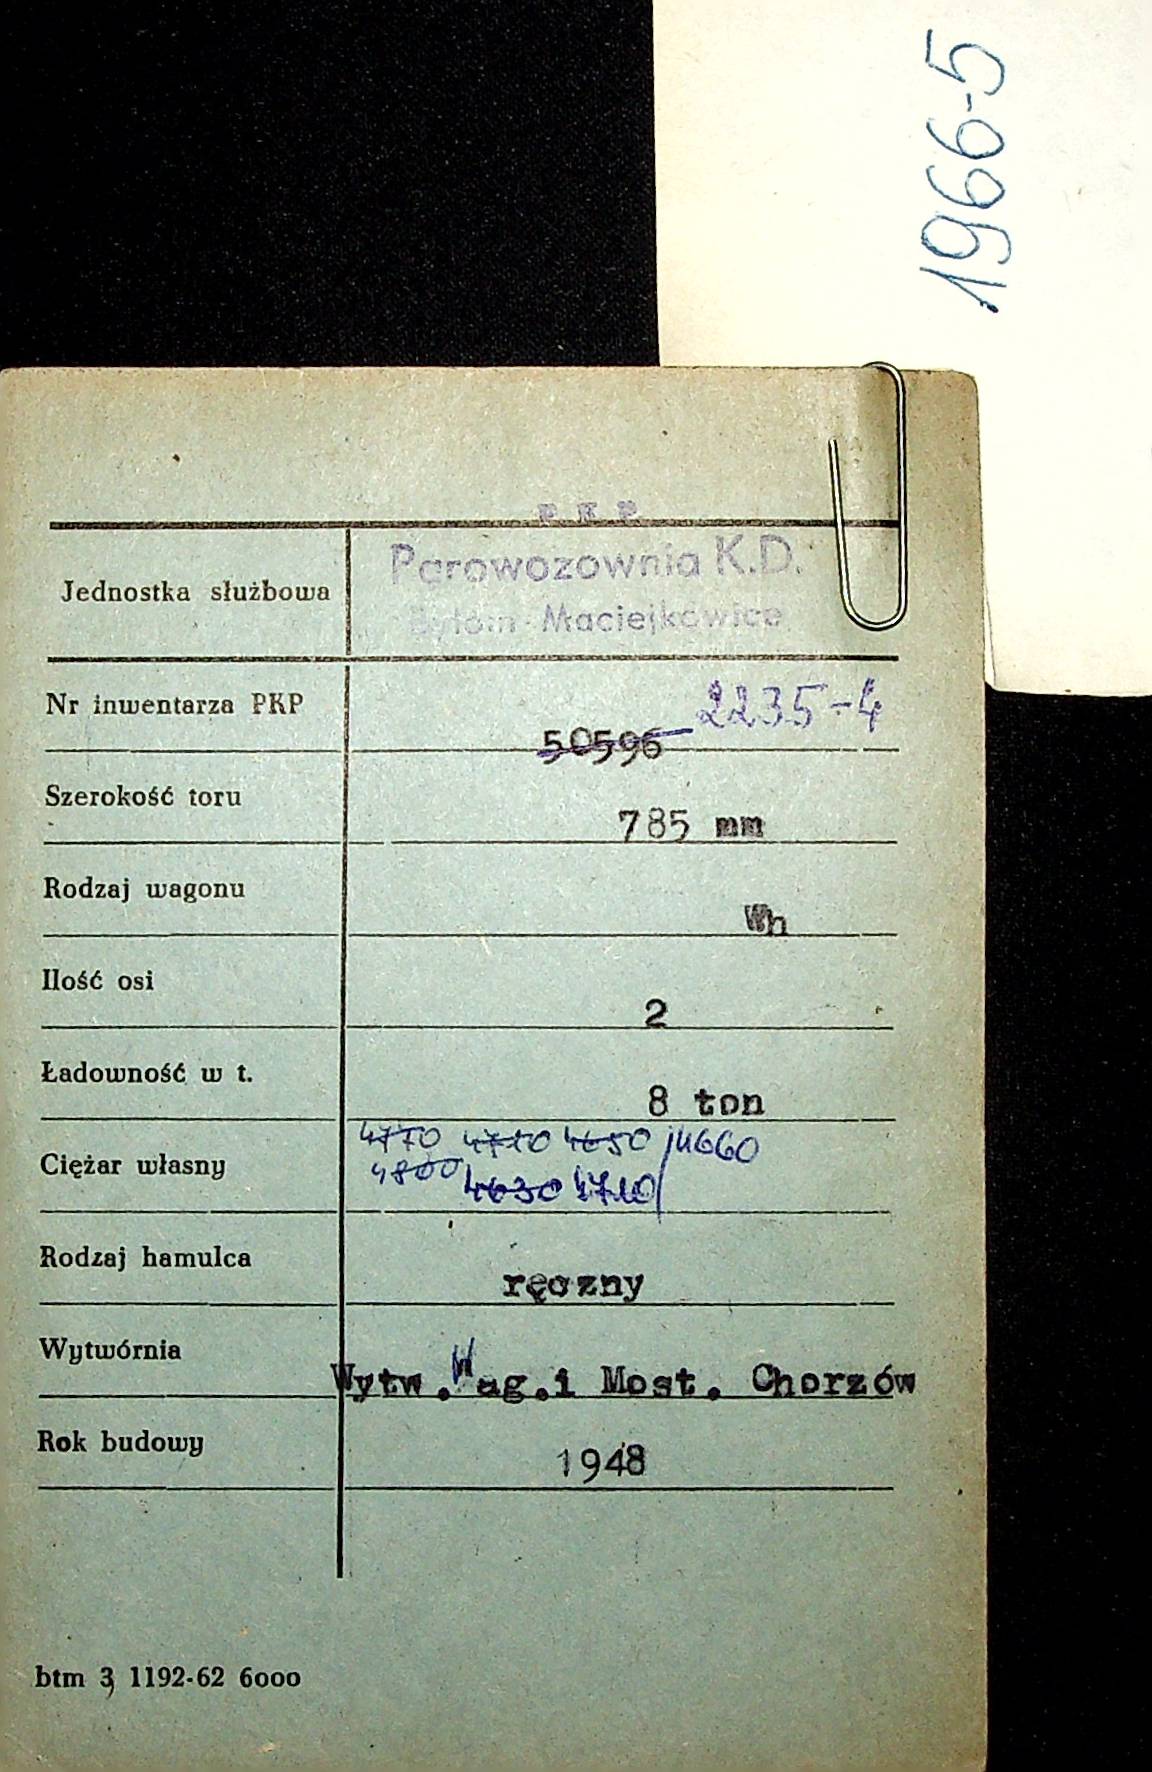 1966-5
P.K.P.
Parowozownia K.D.
Bytom-Maciejkowice
Jednostka służbowa
Nr inwentarza PKP
50596 2235-4
Szerokość toru
785 mm
Rodzaj wagonu
Wh
Ilość osi
2
Ładowność w t.
8 ton
Ciężar własny
4770 4710 4650 4660
4800 4630 4710
Rodzaj hamulca
ręczny
Wytwórnia
Wytw. Wag.i Most. Chorzów
Rok budowy
1948
btm 3, 1192-62 6000